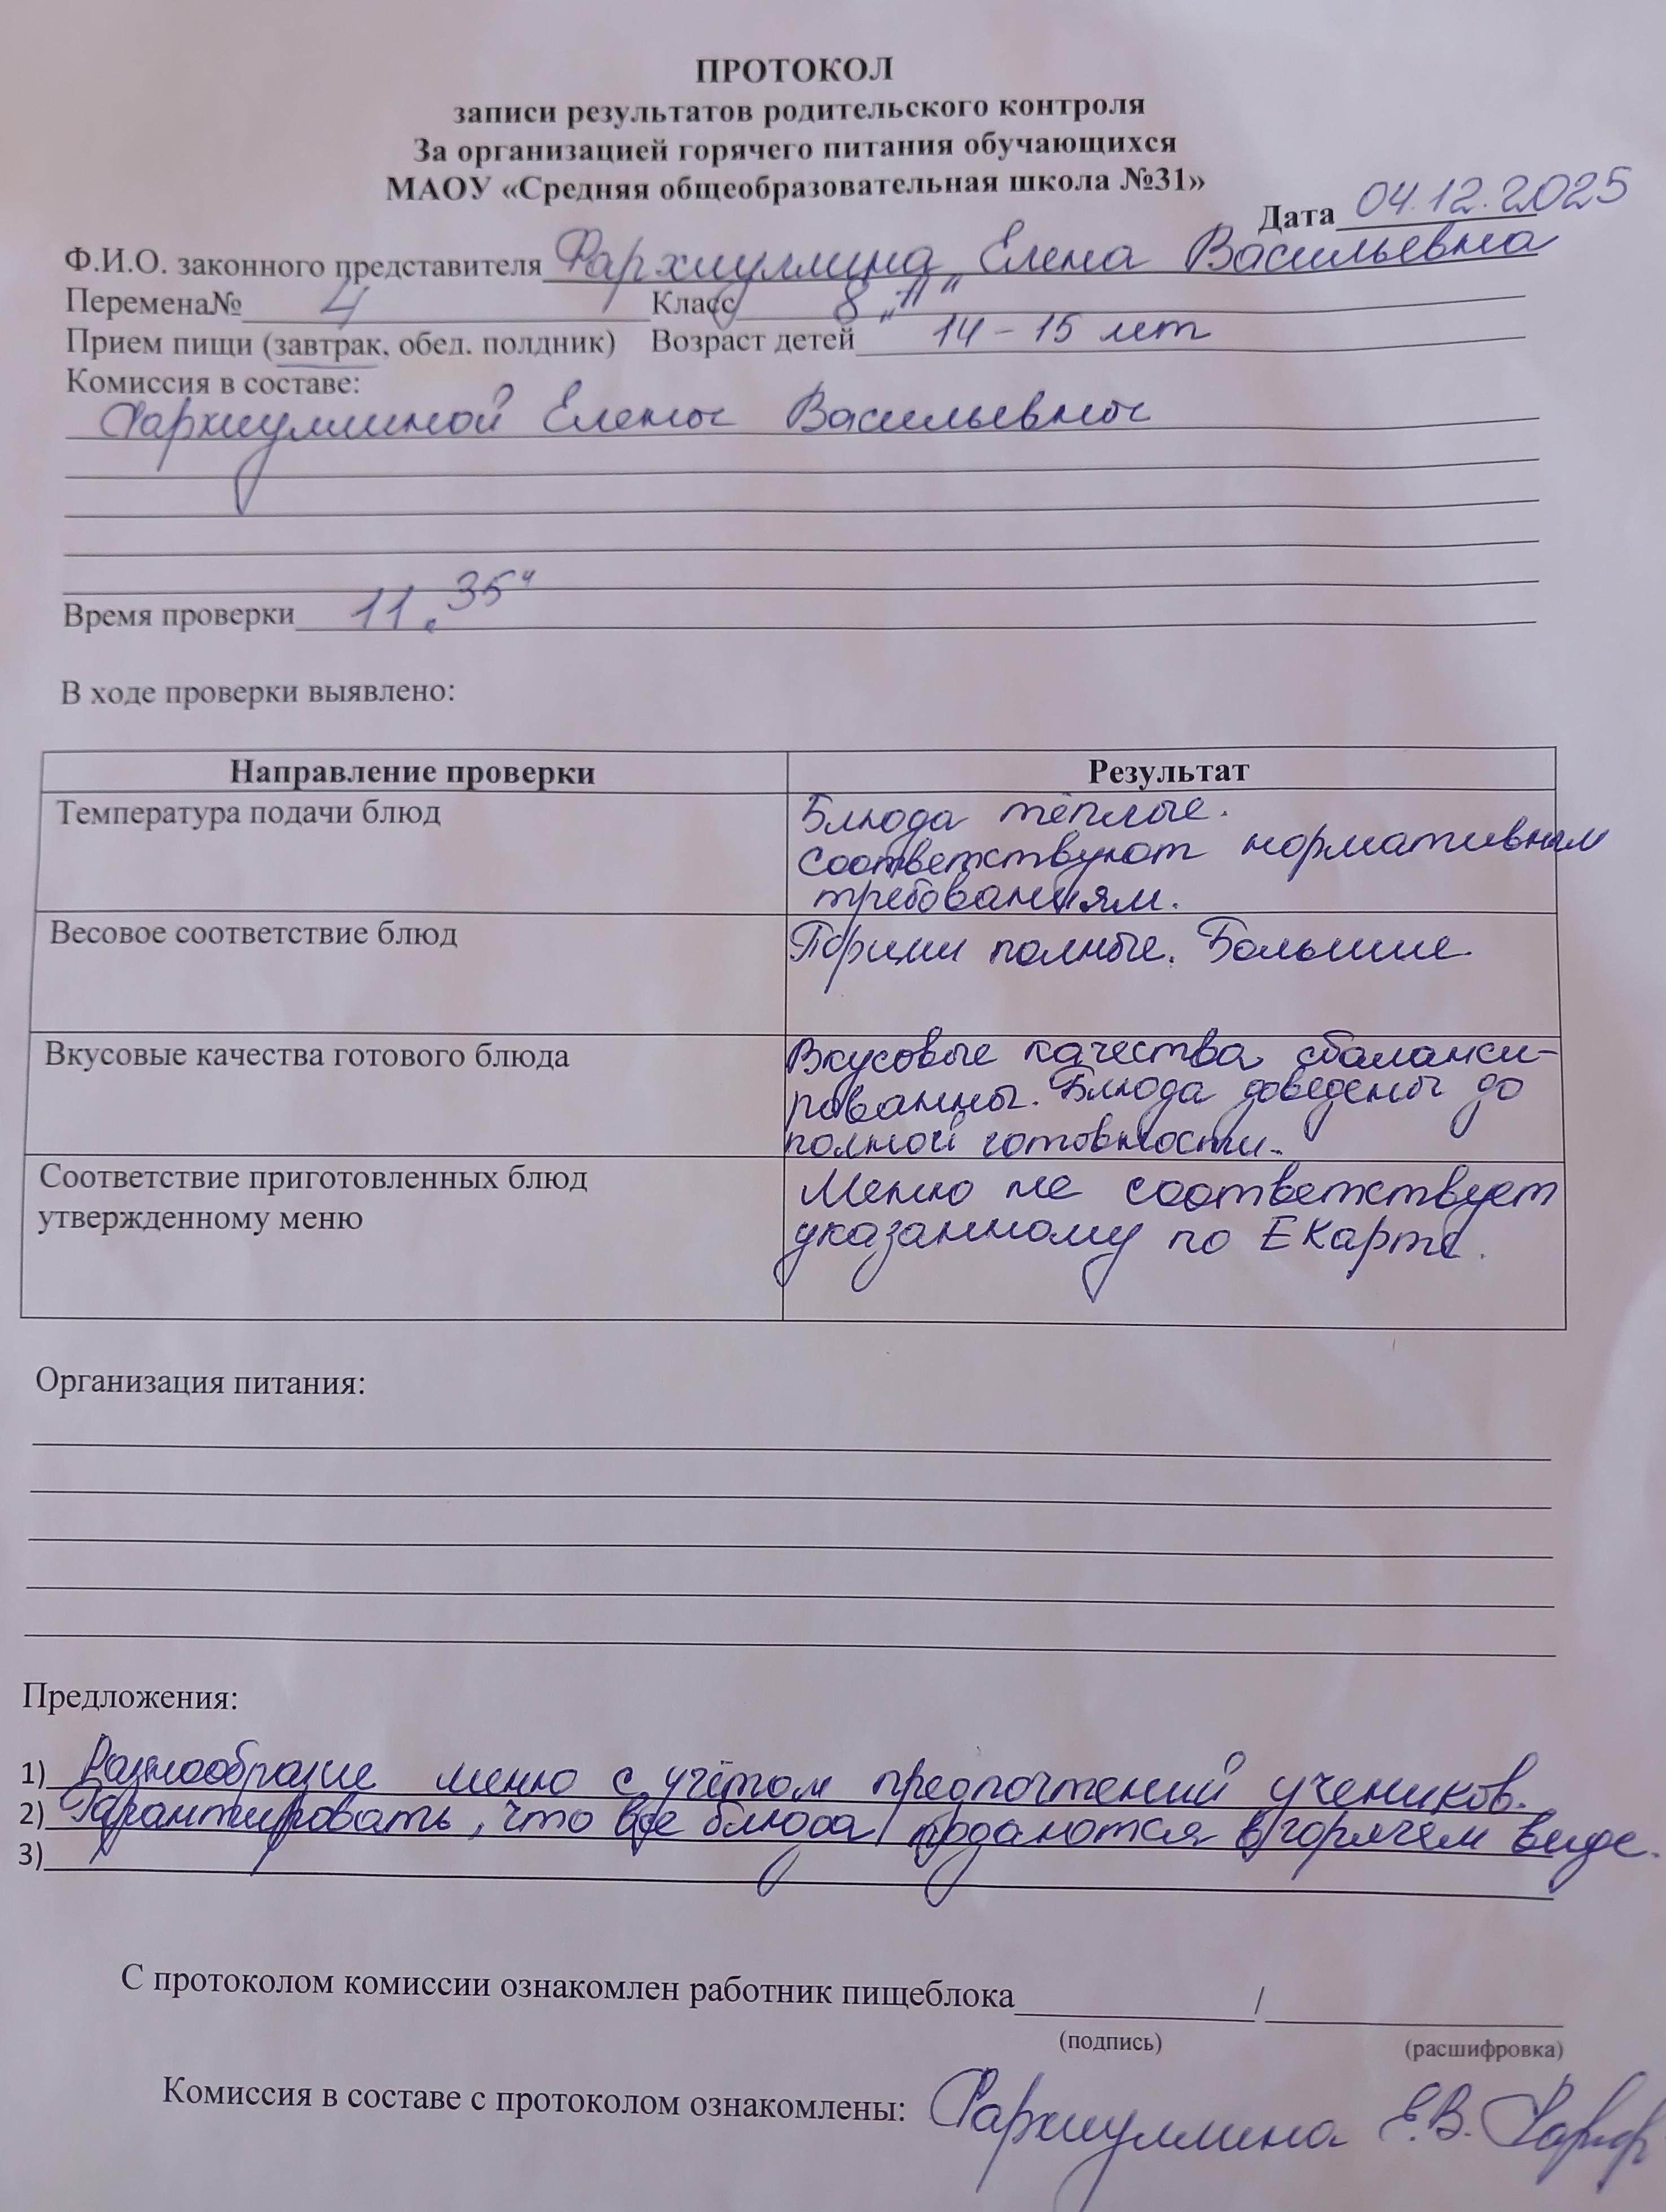 ПРОТОКОЛ
записи результатов родительского контроля
За организацией горячего питания обучающихся
МАОУ «Средняя общеобразовательная школа №31»
Дата 04.12.2025
Ф.И.О. законного представителя Фархиуллина Елена Васильевна
Перемена№ 4 Класс 8
Прием пищи (завтрак, обед. полдник) Возраст детей 14 - 15 лет
Комиссия в составе:
Фархиуллиной Елены Васильевны
Время проверки 11.35ч
В ходе проверки выявлено:
Направление проверки Результат
Температура подачи блюд
Блюда тёплые.
Соответствуют нормативным
требованиям.
Весовое соответствие блюд
Порции полные. Большие.
Вкусовые качества готового блюда
Вкусовые качества сбаланси-
рованны. Блюда доведены до
полной готовности.
Соответствие приготовленных блюд
утвержденному меню
Меню не соответствует
указанному по ЕКарте.
Организация питания:
Предложения:
1) Разнообразие меню с учётом предпочтений учеников.
2) Гарантировать, что все блюда подаются в горячем виде.
3)
С протоколом комиссии ознакомлен работник пищеблока /
(подпись) (расшифровка)
Комиссия в составе с протоколом ознакомлены: Фархиуллина Е.В.